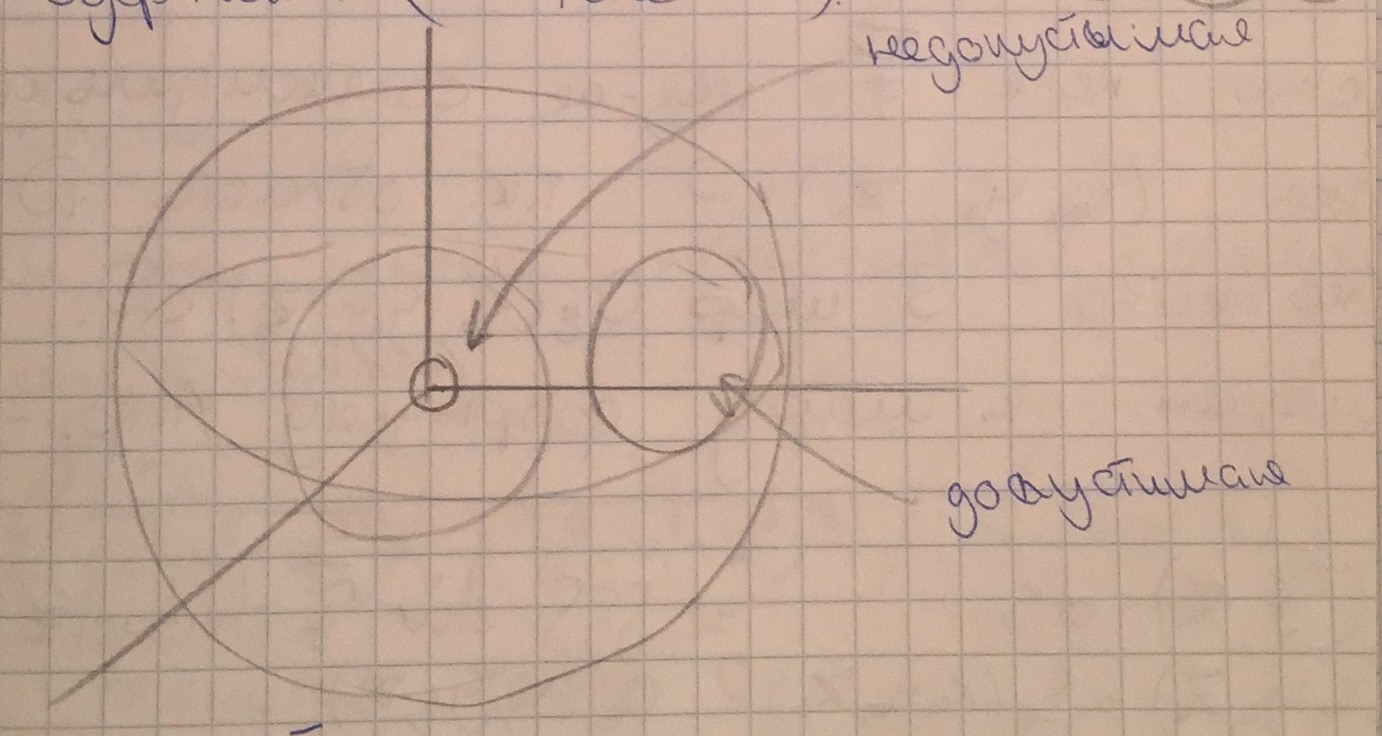 недопустымая
допустимая